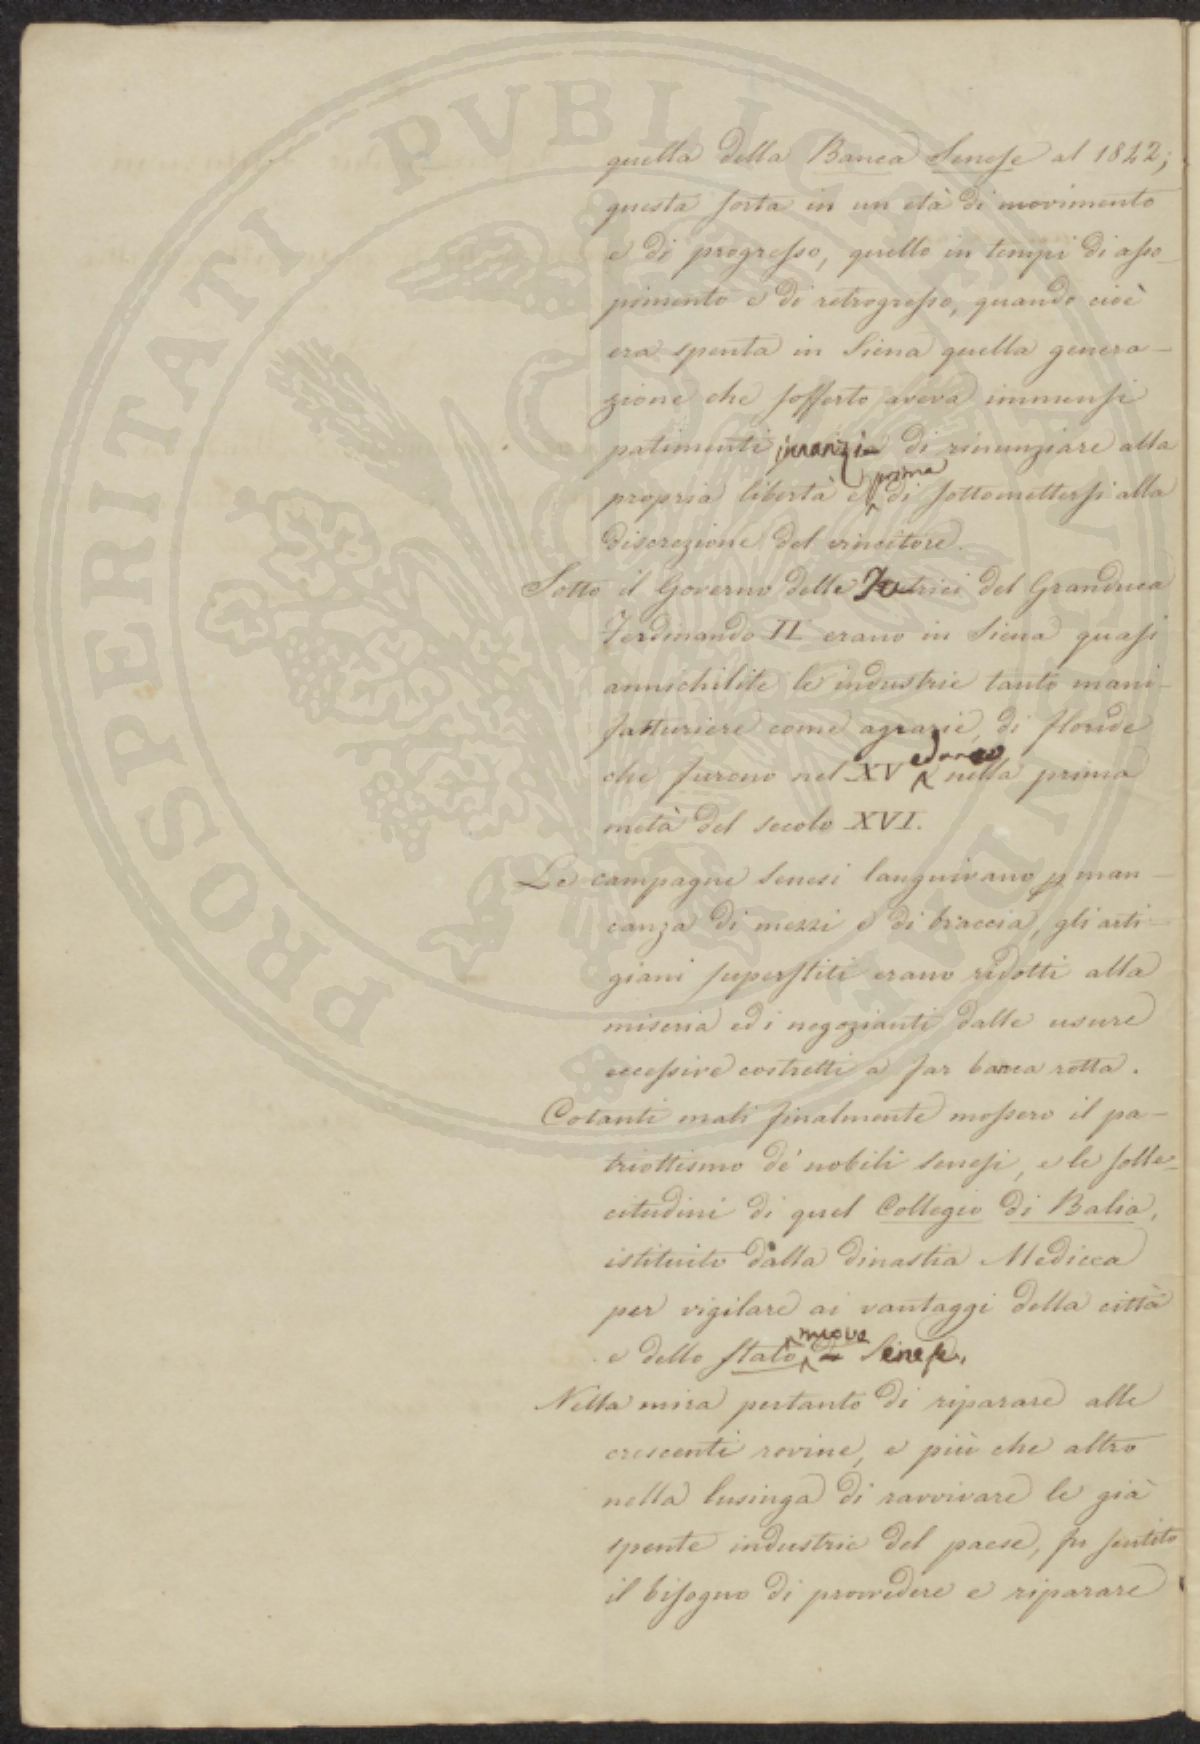 quella della Banca Senese al 1842;
questa sorta in un età di movimento
e di progresso, quello in tempi di asso-
pimento e di retrogresso, quando cioè
era spenta in Siena quella genera-
zione che sofferto aveva immensi
patimenti innanzi di rinunziare alla
propria libertà e prima di sottomettersi alla
discrezione del vincitore.
Sotto il Governo delle Tutrici del Granduca
Ferdinando II erano in Siena quasi
annichilite le industrie tanto mani-
fatturiere come agrarie, di floride
che furono nel XV ed anco nella prima
metà del secolo XVI.
Le campagne senesi languivano p man-
canza di mezzi e di braccia, gli arti-
giani superstiti erano ridotti alla
miseria ed i negozianti dalle usure
eccessive costretti a far banca rotta.
Cotanti mali finalmente mossero il pa-
triottismo de' nobili senesi, e le solle-
citudini di quel Collegio di Balìa,
istituito dalla dinastia Medicea
per vigilare ai vantaggi della città
e dello stato nuovo Senese.
Nella mira pertanto di riparare alle
crescenti rovine, e più che altro
nella lusinga di ravvivare le già
spente industrie del paese, fu sentito
il bisogno di provvedere e riparare
PROSPERITATI PVBLICAE